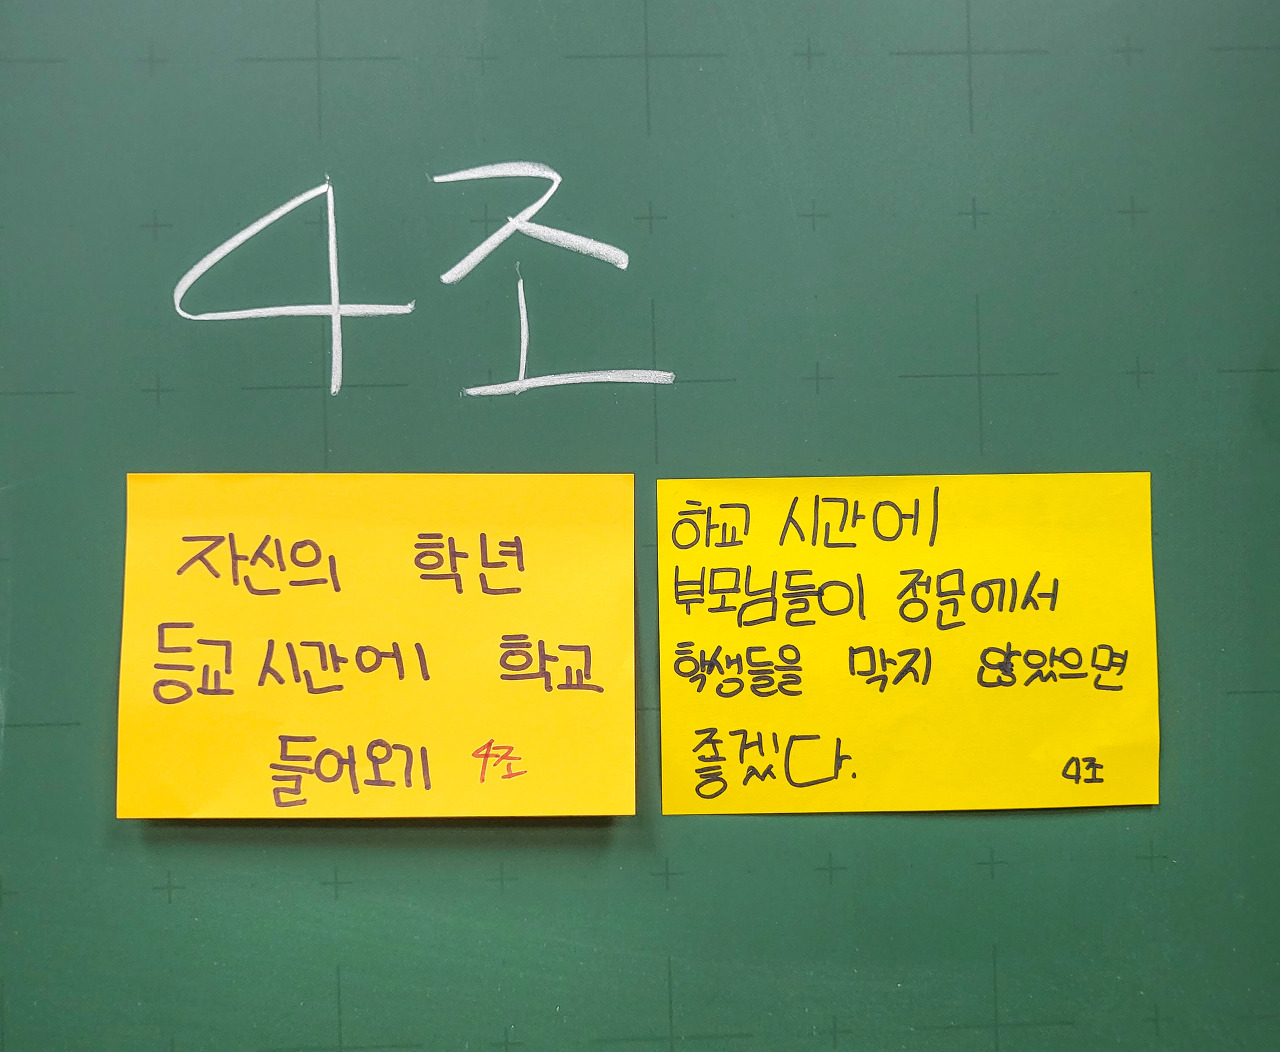 4조
자신의 학년
등교 시간에 학교
들어오기 4조
하교 시간에
부모님들이 정문에서
학생들을 막지 않았으면
좋겠다. 4조